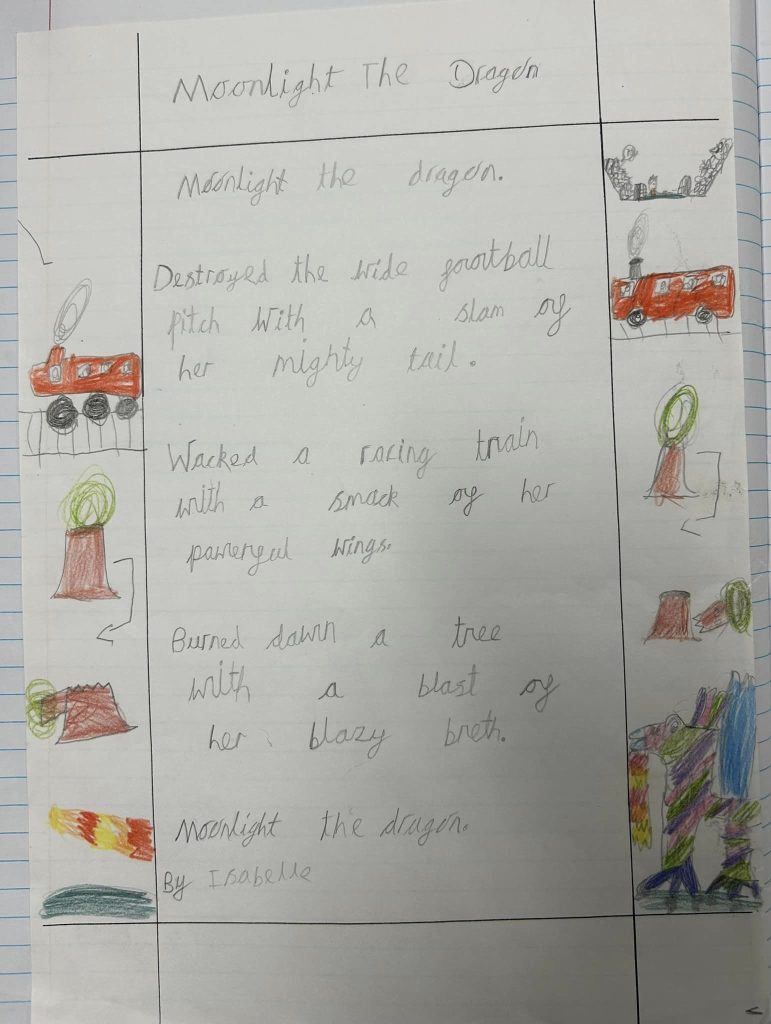 Moonlight The Dragon
Moonlight the dragon.
Destroyed the wide foortball
pitch with a slam of
her mighty tail.
Wacked a racing train
with a smack of her
powerful wings.
Burned down a tree
with a blast of
her blazy breth.
Moonlight the dragon.
By Isabelle